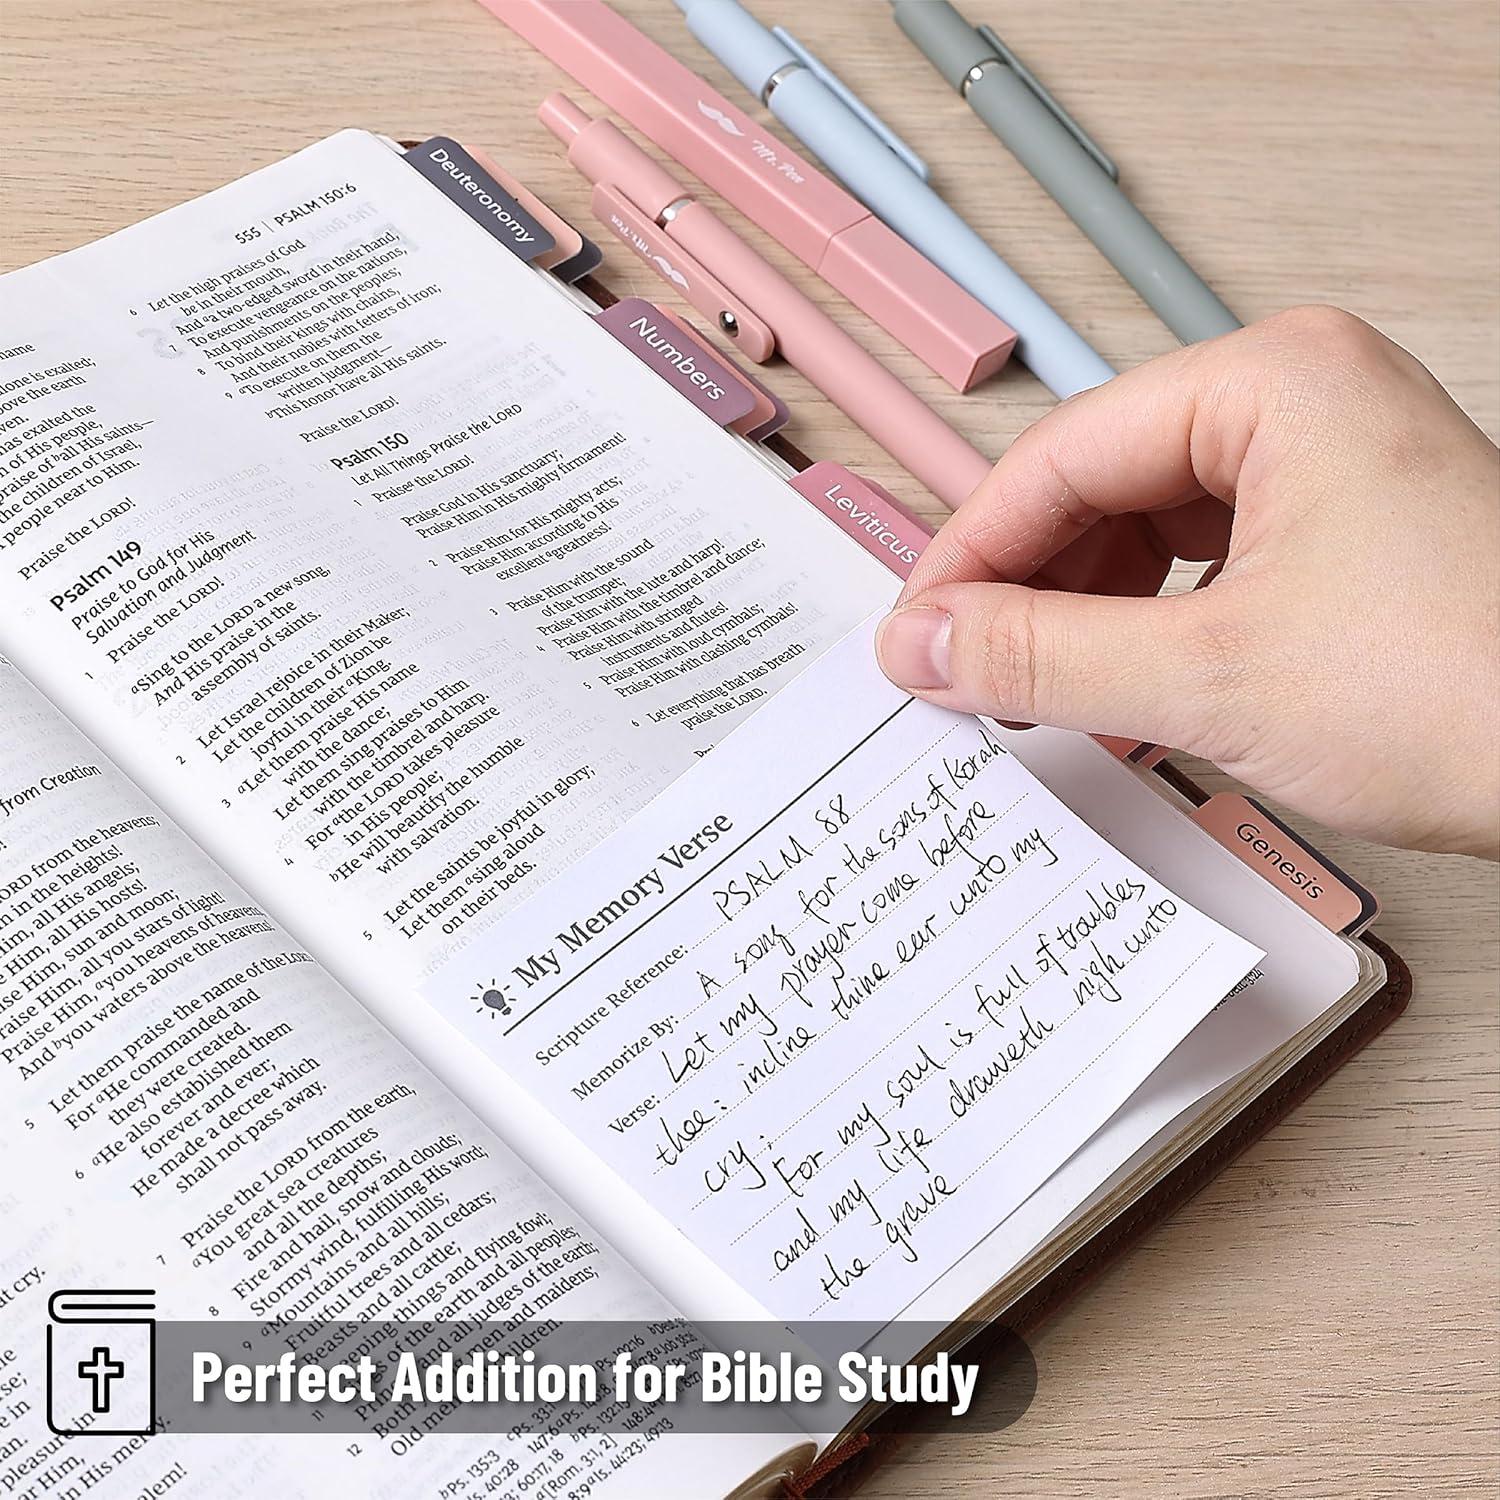 555 | PSALM 150:6
name
alone is exalted;
above the earth
has exalted the
of His people,
praise of ᵇall His saints—
the children of Israel,
people near to Him.
Praise the LORD!
Psalm 149
Praise to God for His
Salvation and Judgment
Praise the LORD!
1 ᵃSing to the LORD a new song,
And His praise in the
assembly of saints.
2 Let Israel rejoice in their Maker;
Let the children of Zion be
joyful in their ᵃKing.
3 ᵃLet them praise His name
with the dance;
Let them sing praises to Him
with the timbrel and harp.
4 For ᵃthe LORD takes pleasure
in His people;
ᵇHe will beautify the humble
with salvation.
5 Let the saints be joyful in glory;
Let them ᵃsing aloud
on their beds.
6 Let the high praises of God
be in their mouth,
And ᵃa two-edged sword in their hand,
7 To execute vengeance on the nations,
And punishments on the peoples;
8 To bind their kings with chains,
And their nobles with fetters of iron;
9 ᵃTo execute on them the
written judgment—
ᵇThis honor have all His saints.
Praise the LORD!
Psalm 150
Let All Things Praise the LORD
1 Praiseᵃ the LORD!
Praise God in His sanctuary;
Praise Him in His mighty firmament!
2 Praise Him for His mighty acts;
Praise Him according to His
excellent ᵃgreatness!
3 Praise Him with the sound
of the trumpet;
Praise Him with the lute and harp!
4 Praise Him with the timbrel and dance;
Praise Him with stringed
instruments and flutes!
5 Praise Him with loud cymbals;
Praise Him with clashing cymbals!
6 Let everything that has breath
praise the LORD.
from Creation
LORD from the heavens;
in the heights!
Him, all His angels;
Him, all His hosts!
Him, sun and moon;
Him, all you stars of light!
Praise Him, ᵃyou heavens of heavens,
And ᵇyou waters above the heavens!
5 Let them praise the name of the LORD,
For ᵃHe commanded and
they were created.
6 ᵃHe also established them
forever and ever;
He made a decree which
shall not pass away.
7 Praise the LORD from the earth,
ᵃYou great sea creatures
and all the depths;
8 Fire and hail, snow and clouds;
Stormy wind, fulfilling His word;
9 ᵃMountains and all hills;
Fruitful trees and all cedars;
Beasts and all cattle;
things and flying fowl;
of the earth and all peoples;
and all judges of the earth;
12 Both men and maidens;
Old men children.
Deuteronomy
Numbers
Leviticus
Genesis
Mr. Pen
Mr. Pen
My Memory Verse
Scripture Reference: PSALM 88
Memorize By: A song for the sons of Korah
Verse: Let my prayer come before
thee: incline thine ear unto my
cry;
For my soul is full of troubles
and my life draweth nigh unto
the grave
Perfect Addition for Bible Study